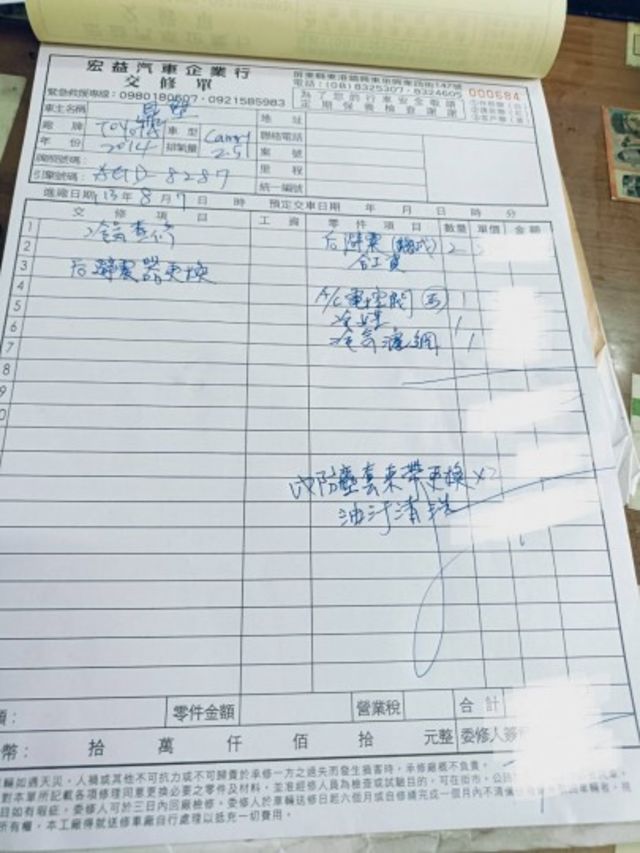 宏益汽車企業行
交修單
屏東縣東港鎮興東里興東西街147號
電話：(08)8325307·8324605
000684
緊急救援專線：0980180607·0921585983
為了您的行車安全敬請
定期保養檢查謝謝
車主名稱
地址
廠牌 TOYOTA 車型 Camry
聯絡電話
年份 2014 排氣量 2.5
案號
牌照號碼：
里程
引擎號碼： 8287
統一編號
進廠日期 13年 8月 7日 時 預定交車日期 年 月 日 時 分
交修項目 工資 零件項目 數量 單價 金額
1 冷氣查修
后避震 2
2 含工資
3 后避震器更換
4 A/C電控閥 1
5 冷媒 1
6 冷氣濾網 1
7
8
9
防塵套束帶更換 x2
油汙清洗
零件金額 營業稅 合計
幣： 拾 萬 仟 佰 拾 元整 委修人簽
輛如遇天災，人禍或其他不可抗力或不可歸責於承修一方之過失而發生損害時，承修廠概不負責。
對本單所記載各項修理同意更換必要之零件及材料，並准經修人員為檢查或試驗目的，可在街市，公
目如有瑕疵，委修人可於三日內回廠檢修。委修人於車輛送修日起六個月或自修繕完成一個月內不清
所有權，本工廠得就送修車廠自行處理以抵充一切費用。